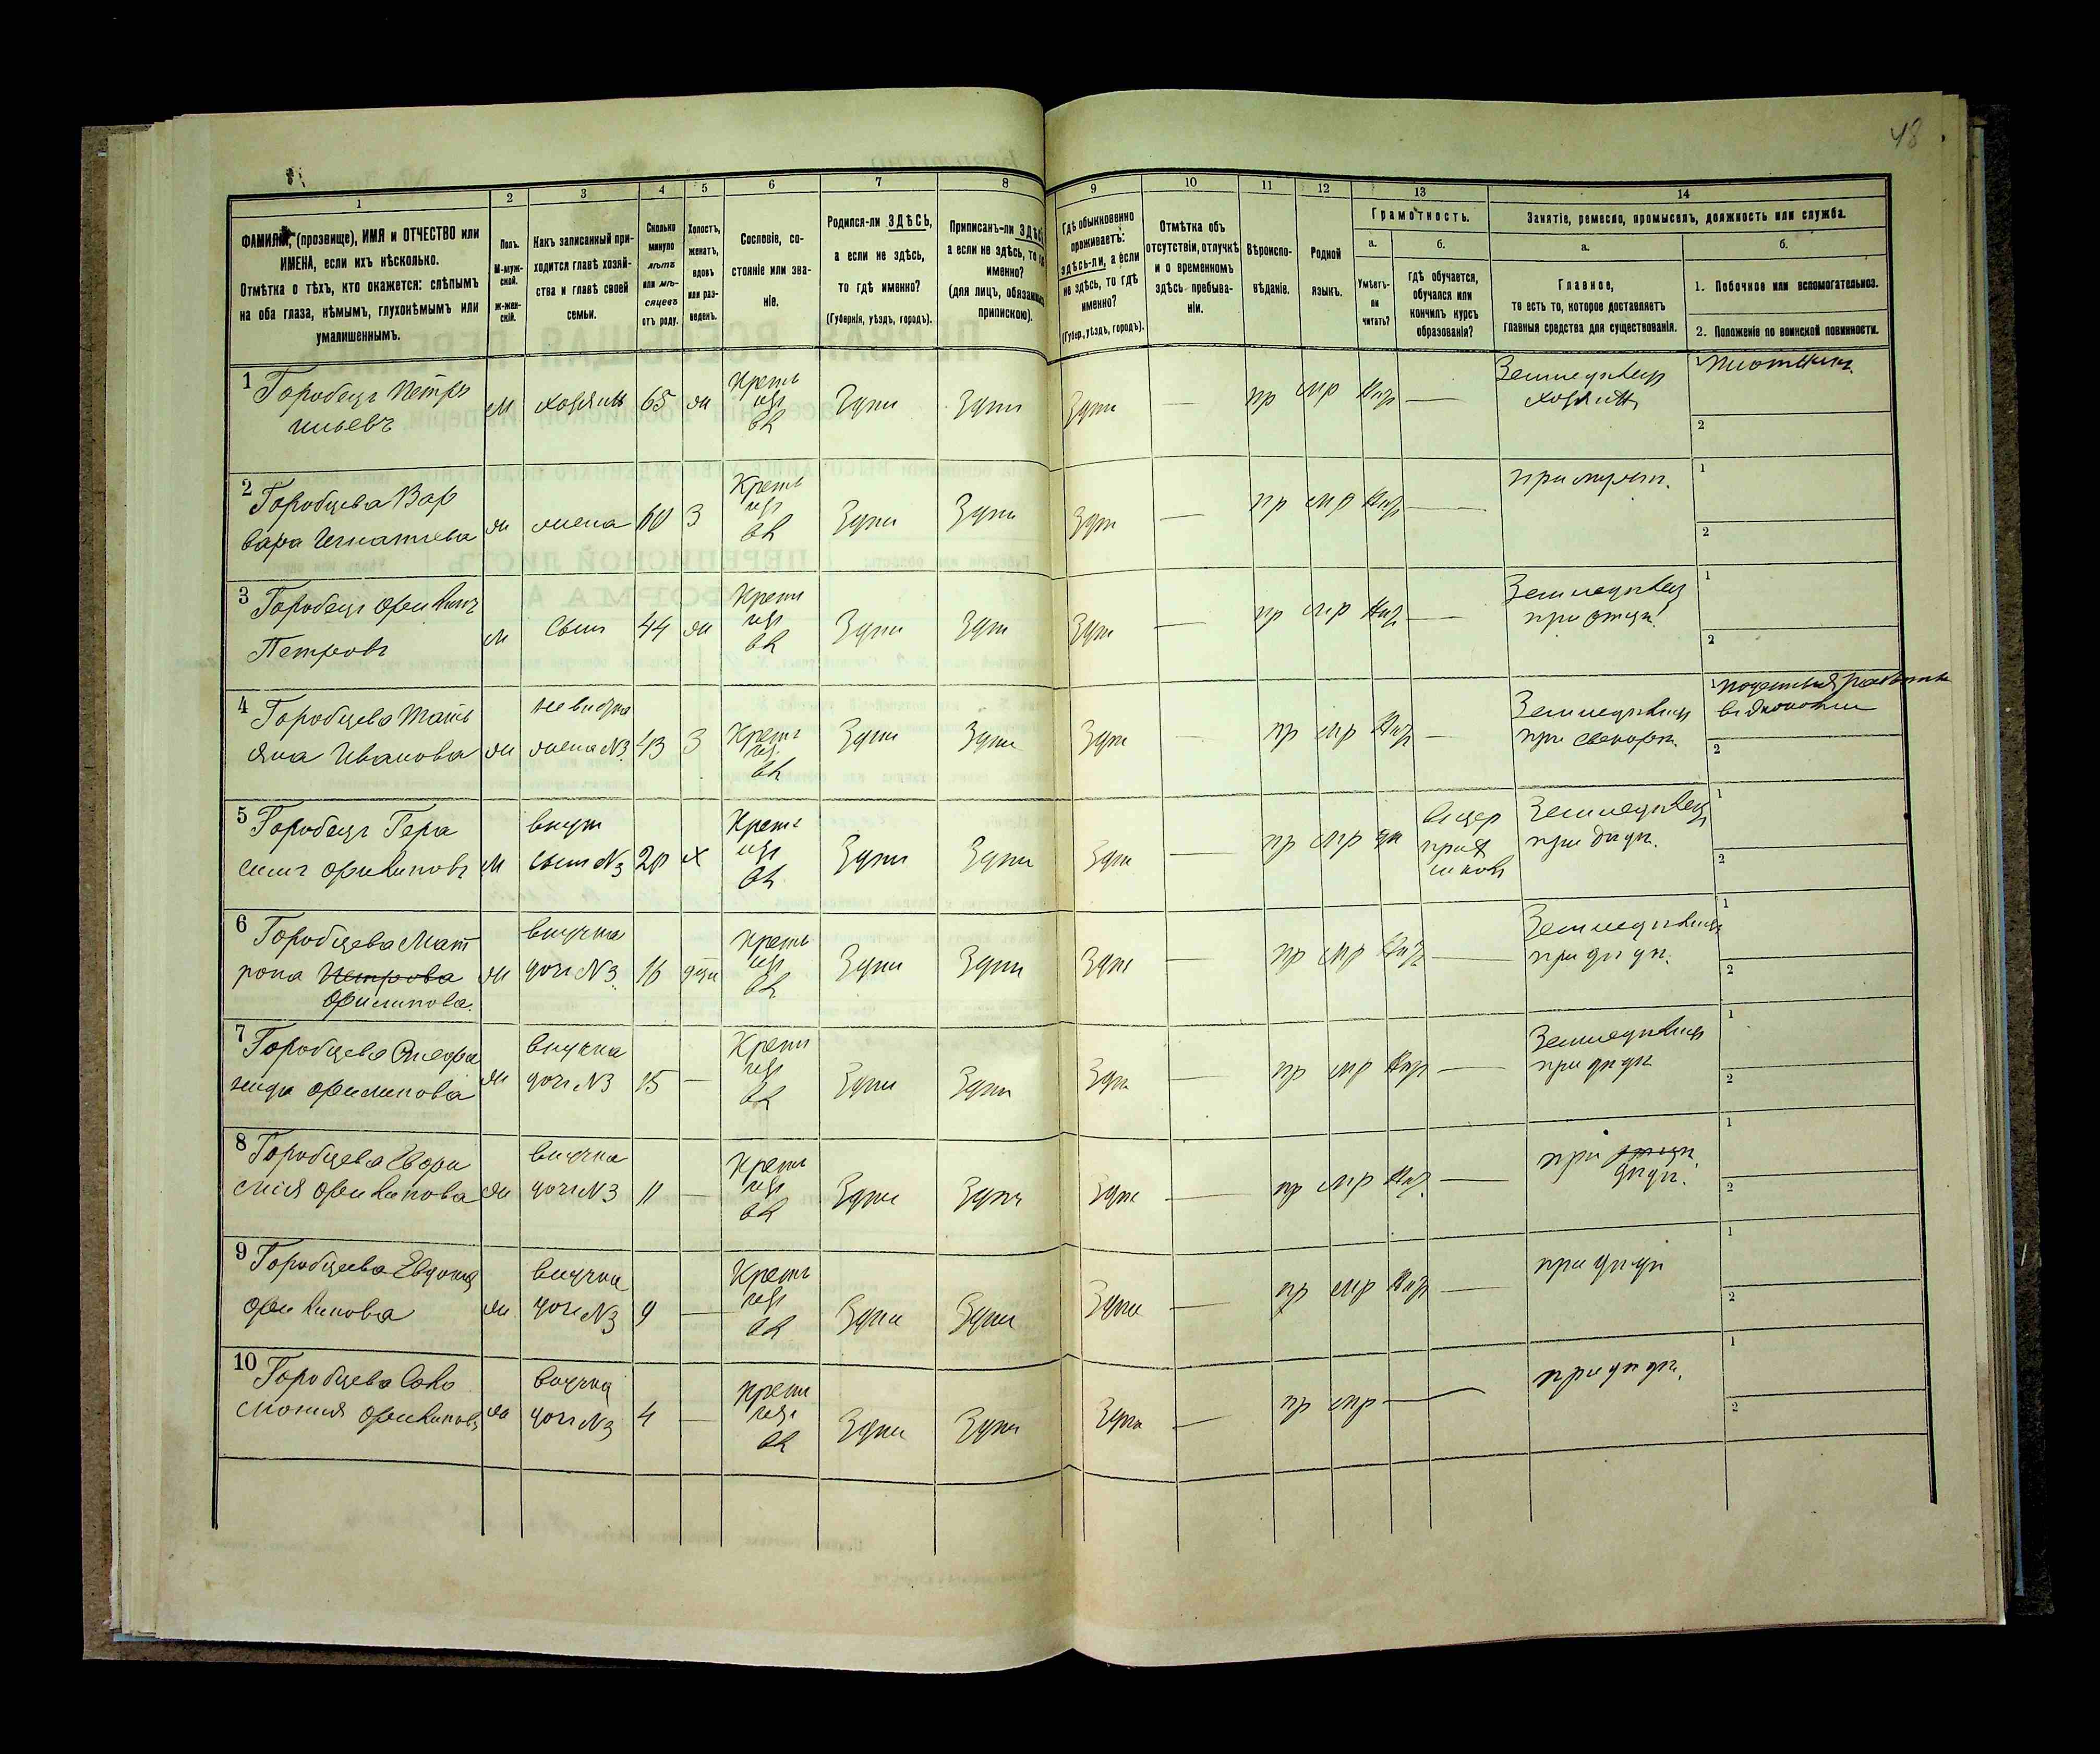 48
1 2 3 4 5 6 7 8 9 10 11 12 13 14
ФАМИЛІЯ, (прозвище), ИМЯ и ОТЧЕСТВО или
ИМЕНА, если ихъ нѣсколько.
Отмѣтка о тѣхъ, кто окажется: слѣпымъ
на оба глаза, нѣмымъ, глухонѣмымъ или
умалишеннымъ.
Полъ.
М-муж-
ской.
Ж-жен-
скій.
Какъ записанный при-
ходится главѣ хозяй-
ства и главѣ своей
семьи.
Сколько
минуло
лѣтъ
или мѣ-
сяцевъ
отъ роду.
Холостъ,
женатъ,
вдовъ
или раз-
веденъ.
Сословіе, со-
стояніе или зва-
ніе.
Родился-ли ЗДѢСЬ,
а если не здѣсь,
то гдѣ именно?
(Губернія, уѣздъ, городъ).
Приписанъ-ли ЗДѢСЬ,
а если не здѣсь, то гдѣ
именно?
(для лицъ, обязанныхъ
припискою).
Гдѣ обыкновенно
проживаетъ:
здѣсь-ли, а если
не здѣсь, то гдѣ
именно?
(Губер., уѣздъ, городъ).
Отмѣтка объ
отсутствіи, отлучкѣ
и о временномъ
здѣсь пребыва-
ніи.
Вѣроиспо-
вѣданіе.
Родной
языкъ.
Грамотность.
а.
Умѣетъ-
ли
читать?
б.
Гдѣ обучается,
обучался или
кончилъ курсъ
образованія?
Занятіе, ремесло, промыселъ, должность или служба.
а.
Главное,
то есть то, которое доставляетъ
главныя средства для существованія.
б.
1. Побочное или вспомогательное.
2. Положеніе по воинской повинности.
1 Горобецъ Петръ
Ильевъ
м хозяинъ 65 ж Крестъ
изъ
вл Здѣсь Здѣсь Здѣсь — пр мр нѣтъ — Земледѣлецъ
хозяинъ
1 Плотникъ.
2
2 Горобцева Вар
вара Игнатьева ж жена 60 З Крестъ
изъ
вл Здѣсь Здѣсь Здѣсь — пр мр нѣтъ — при мужѣ.
1
2
3 Горобецъ Филипъ
Петровъ м Сынъ 44 ж Крестъ
изъ
вл Здѣсь Здѣсь Здѣсь — пр мр нѣтъ — Земледѣлец
при отцѣ.
1
2
4 Горобцева Тать
яна Иванова ж невѣстка
жена №3 43 З Крестъ
изъ
вл Здѣсь Здѣсь Здѣсь — пр мр нѣтъ — Земледѣлецъ
при свекорѣ.
1 поденная работница
въ экономіи
2
5 Горобецъ Гера
симъ Филиповъ м внукъ
сынъ №3 20 х Крестъ
изъ
вл Здѣсь Здѣсь Здѣсь — пр мр да Земледѣлецъ
при дѣдѣ.
1
2
6 Горобцева Мат
рона Петрова
Филипова. ж внучка
дочь №3 16 Крестъ
изъ
вл Здѣсь Здѣсь Здѣсь — пр мр нѣтъ — Земледѣлецъ
при дѣдѣ.
1
2
7 Горобцева
Филипова ж внучка
дочь №3 15 — Крестъ
изъ
вл Здѣсь Здѣсь Здѣсь — пр мр нѣтъ — Земледѣлецъ
при дѣдѣ
1
2
8 Горобцева Евфи
мія Филипова ж внучка
дочь №3 11 — Крестъ
изъ
вл Здѣсь Здѣсь Здѣсь — пр мр нѣтъ — при отцѣ
дѣдѣ.
1
2
9 Горобцева Евдокія
Филипова ж внучка
дочь №3 9 — Крестъ
изъ
вл Здѣсь Здѣсь Здѣсь — пр мр нѣтъ — при дѣдѣ
1
2
10 Горобцева Соло
монія Филипова ж внучка
дочь №3 4 — Крестъ
изъ
вл Здѣсь Здѣсь Здѣсь — пр мр — при дѣдѣ.
1
2